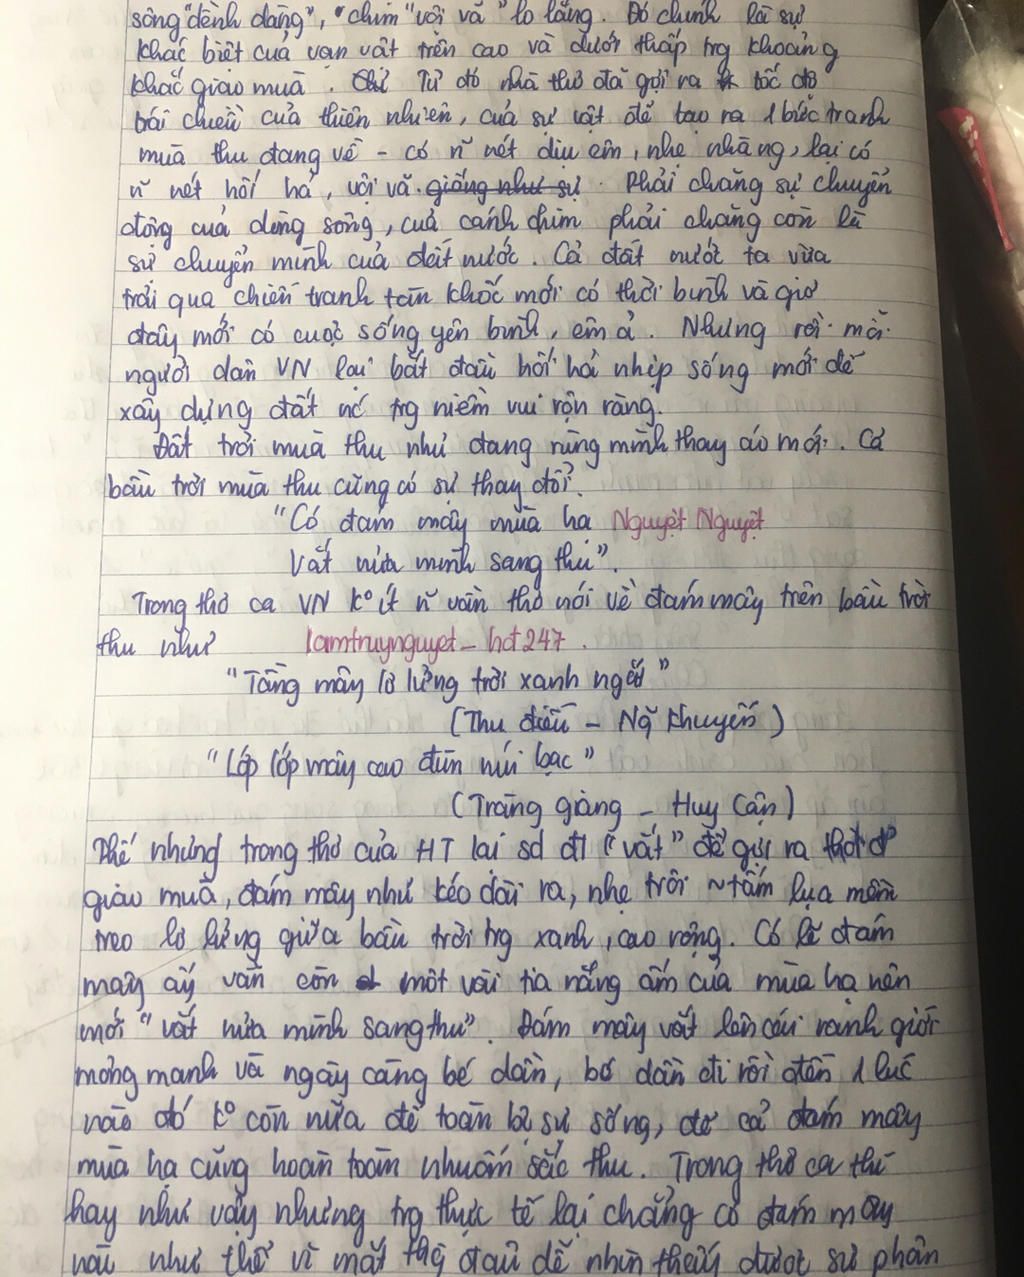 sông "dềnh dàng", "chim "vội vã" lo lắng. Đó chính là sự
khác biệt của vạn vật trên cao và dưới thấp trg khoảng
khắc giao mùa. Từ đó nhà thơ đã gợi ra tốc độ
trái chiều của thiên nhiên, của sự vật để tạo ra 1 bức tranh
mùa thu đang về - có ~ nét dịu êm, nhẹ nhàng, lại có
~ nét hối hả, vội vã. giống như sự. Phải chăng sự chuyển
động của dòng sông, của cánh chim phải chăng còn là
sự chuyển mình của đất nước. Cả đất nước ta vừa
trải qua chiến tranh tàn khốc mới có thời bình và giờ
đây mới có cuộc sống yên bình, êm ả. Nhưng rồi mỗi
người dân VN lại bắt đầu hối hả nhịp sống mới để
xây dựng đất nc trg niềm vui rộn ràng.
Đất trời mùa thu như đang rùng mình thay áo mới. Cả
bầu trời mùa thu cũng có sự thay đổi.
"Có đám mây mùa hạ Nguyệt Nguyệt
Vắt nửa mình sang thu".
Trong thơ ca VN kº ít ~ vần thơ nói về đám mây trên bầu trời
thu như lamtruynguyet_hd247.
"Tầng mây lơ lửng trời xanh ngắt"
(Thu điếu - Ng~ Khuyến)
"Lớp lớp mây cao đùn núi bạc"
(Tràng giang - Huy Cận)
Thế nhưng trong thơ của HT lại sd đt "vắt" để gợi ra thời đ'
giao mùa, đám mây như kéo dài ra, nhẹ trôi ~ tấm lụa mềm
treo lơ lửng giữa bầu trời trg xanh, cao rộng. Có lẽ đám
mây ấy vẫn còn một vài tia nắng ấm của mùa hạ nên
mới "vắt nửa mình sang thu". Đám mây vắt lên cái ranh giới
mỏng manh và ngày càng bé dần, bé dần đi rồi đến 1 lúc
nào đó kº còn nữa để toàn bộ sự sống, để cả đám mây
mùa hạ cũng hoàn toàn nhuốm sắc thu. Trong thơ ca thì
hay như vậy nhưng trg thực tế lại chẳng có đám mây
nào như thế vì mắt thg đâu dễ nhìn thấy được sự phân